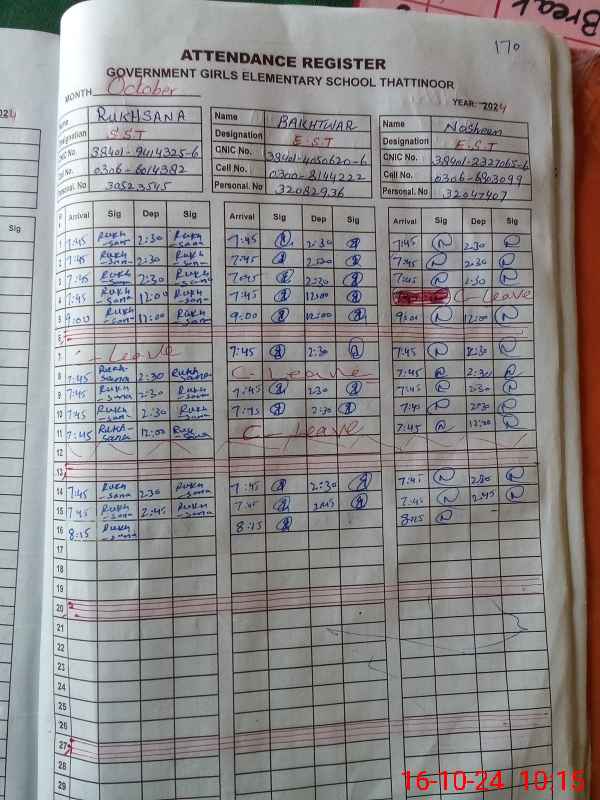 170
Break
ATTENDANCE REGISTER
GOVERNMENT GIRLS ELEMENTARY SCHOOL THATTINOOR
MONTH October YEAR: 2024
Name RUKHSANA Name BAKHTWAR Name Nasheen
Designation S.S.T Designation E.S.T Designation E.S.T
CNIC No. 38401-9414325-6 CNIC No. 38401-4050620-6 CNIC No. 38401-2327065-6
Cell No. 0306-6014382 Cell No. 0300-8144222 Cell No. 0306-6803099
Personal. No 30523545 Personal. No 32082936 Personal. No 32047407
Sig Arrival Sig Dep Sig Arrival Sig Dep Sig Arrival Sig Dep Sig
1 7:45 Rukh-sana 2:30 Rukh-sana 7:45 2:30 7:45 N 2:30 N
2 7:45 Rukh-sana 2:30 Rukh-sana 7:45 2:30 7:45 N 2:30 N
3 7:45 Rukh-sana 2:30 Rukh-sana 7:45 2:30 7:45 N 2:30 N
4 7:45 Rukh-sana 12:00 Rukh-sana 7:45 12:00 C-Leave
5 9:00 Rukh-sana 12:00 Rukh-sana 9:00 12:00 9:00 N 12:00 N
6
7 C-Leave 7:45 2:30 7:45 N 2:30 N
8 7:45 Rukh-sana 2:30 Rukhsana C-Leave 7:45 N 2:30 N
9 7:45 Rukh-sana 2:30 Rukh-sana 7:45 2:30 7:45 N 2:30 N
10 7:45 Rukh-sana 2:30 Rukh-sana 7:45 2:30 7:45 N 2:30 N
11 7:45 Rukh-sana 12:00 Rukh-sana C-Leave 7:45 N 12:00 N
12
13
14 7:45 Rukh-sana 2:30 Rukh-sana 7:45 2:30 7:45 N 2:30 N
15 7:45 Rukh-sana 2:45 Rukh-sana 7:45 2:45 7:45 N 2:45 N
16 8:15 Rukh-sana 8:15 8:15 N
17
18
19
20
21
22
23
24
25
26
27
28
29
16-10-24 10:15